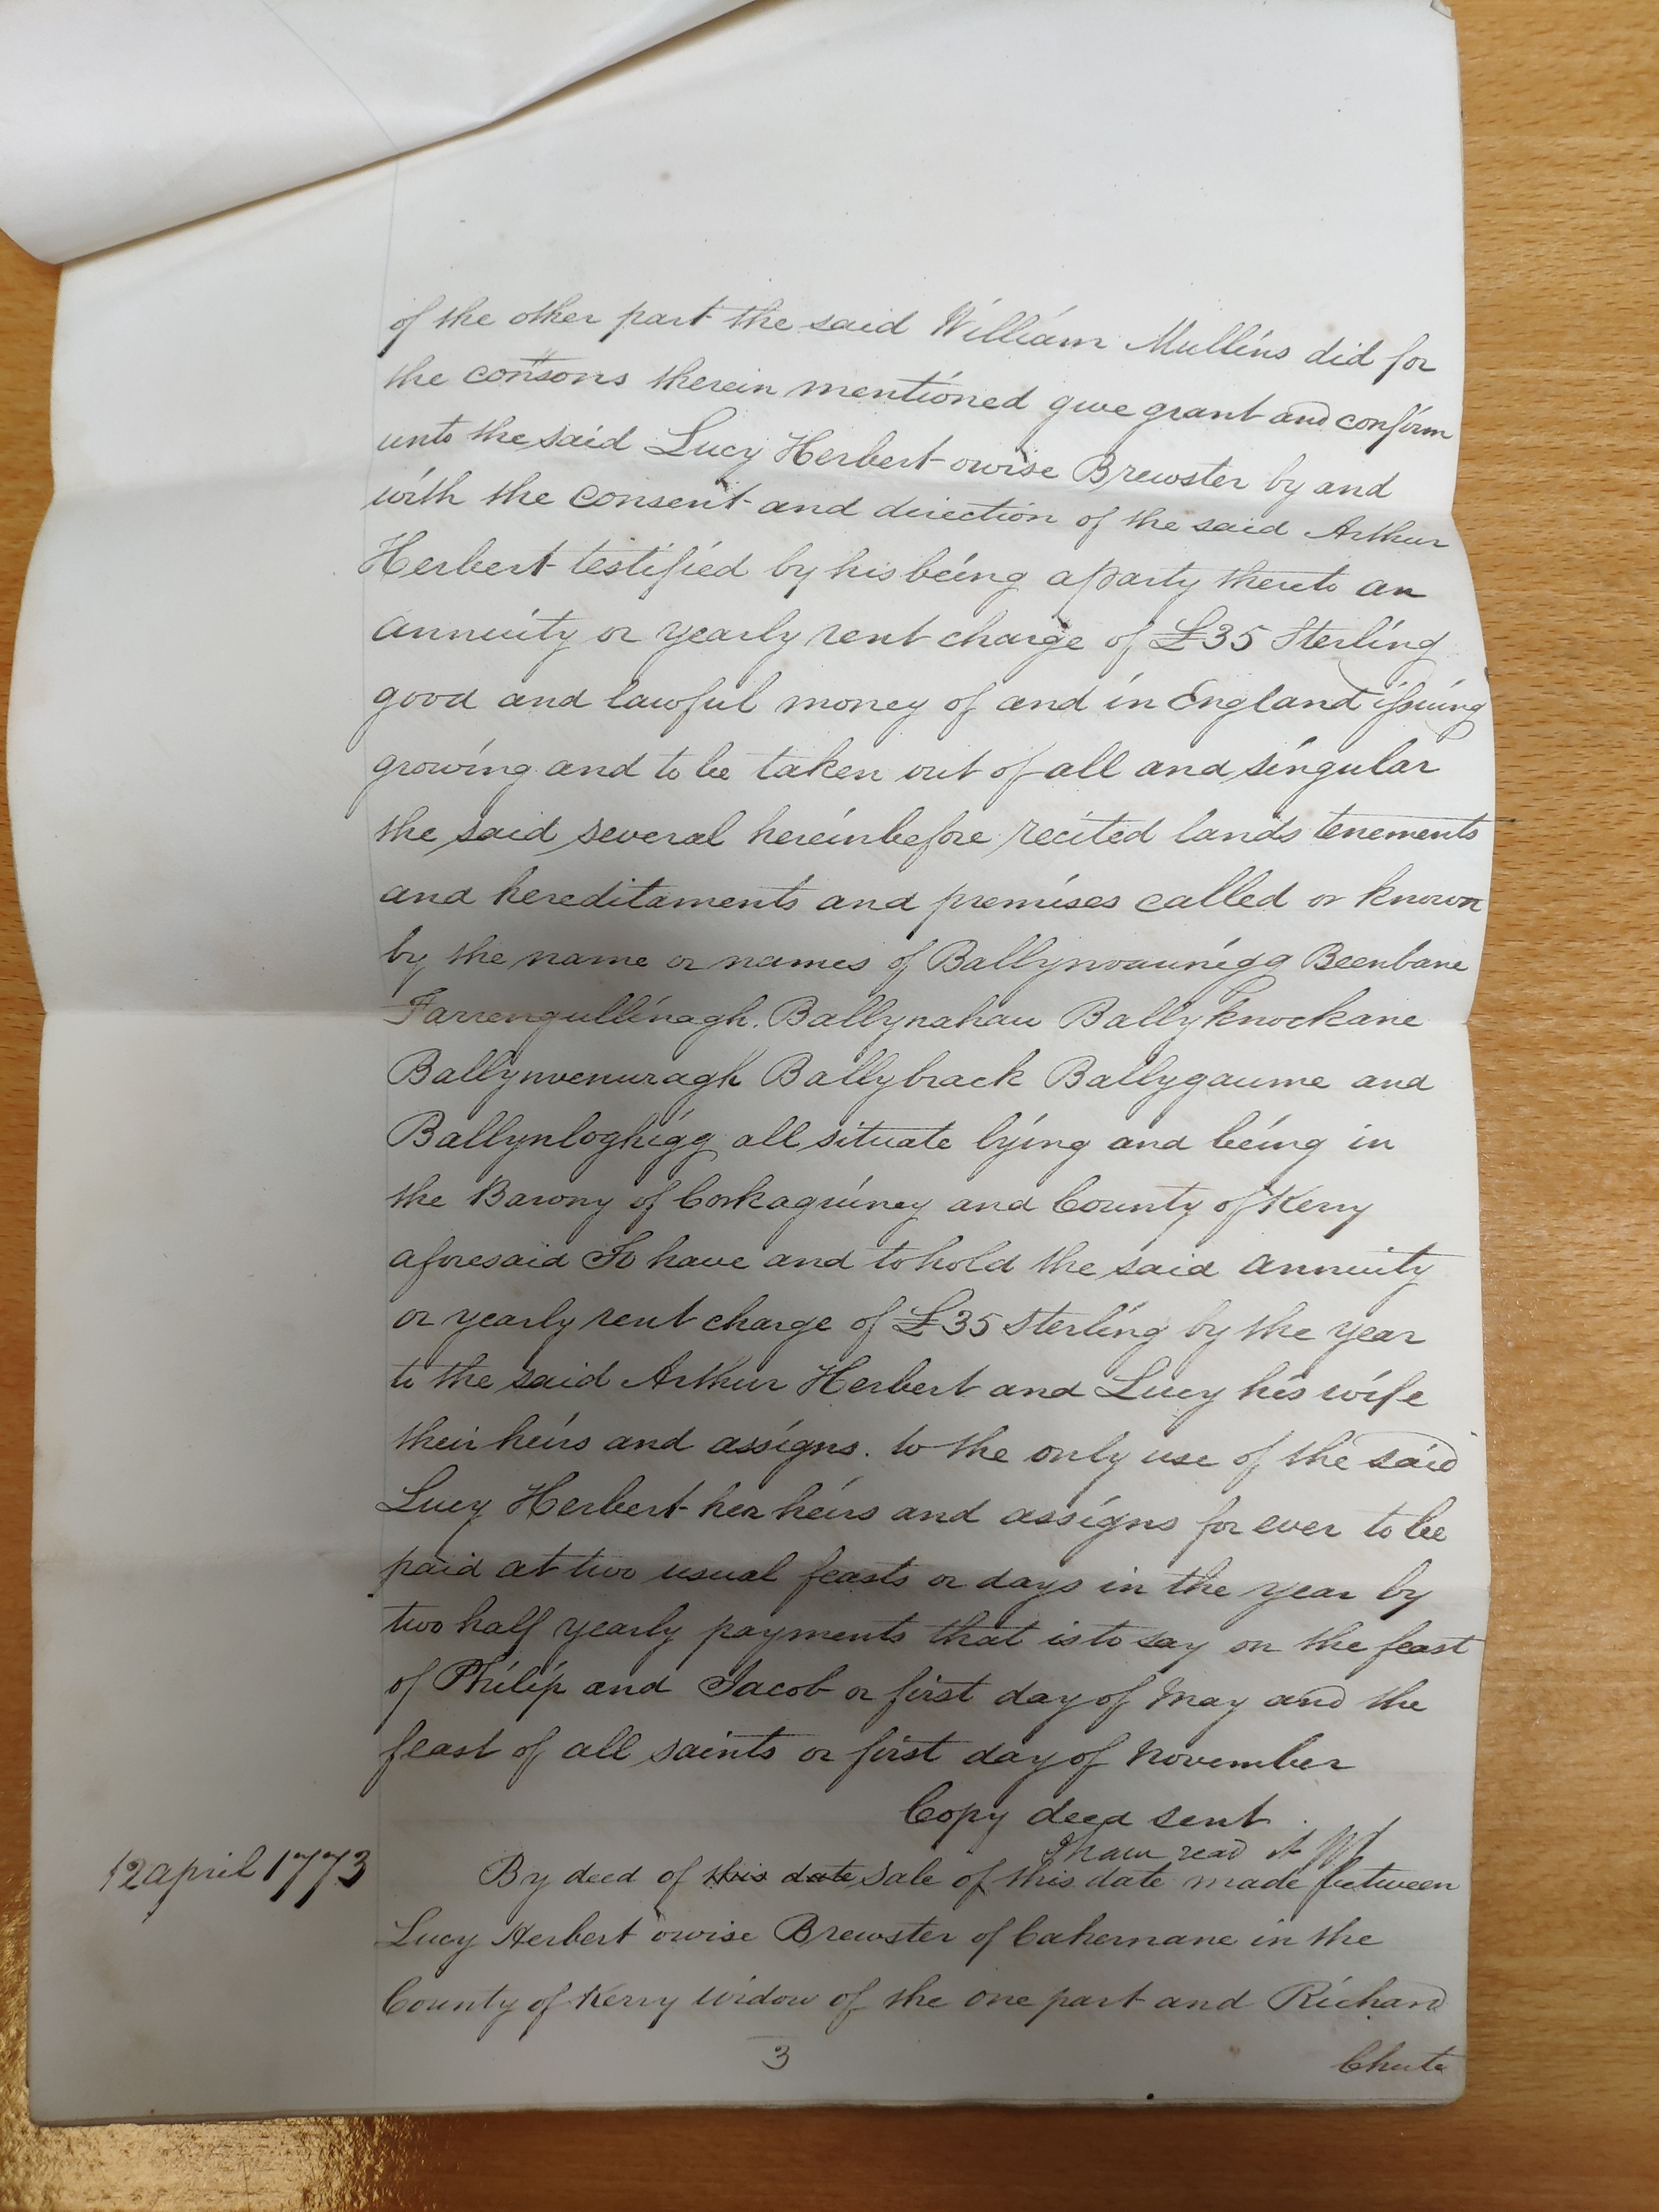 of the other part the said William Mullins did for
the consons therein mentioned give grant and confirm
unto the said Lucy Herbert owise Brewster by and
with the consent and direction of the said Arthur
Herbert testified by his being a party thereto an
annuity or yearly rent charge of £35 Sterling
good and lawful money of and in England issuing
growing and to be taken out of all and singular
the said several hereinbefore recited lands tenements
and hereditaments and premises called or known
by the name or names of Ballynvaunigg Beenbane
Farrengullinagh. Ballynahau Ballyknockane
Ballynvenuragh Ballybrack Ballygaume and
Ballynloghigg all situate lying and being in
the Barony of Corkaguiney and County of Kerry
aforesaid To have and to hold the said annuity
or yearly rent charge of £35 Sterling by the year
to the said Arthur Herbert and Lucy his wife
their heirs and assigns. to the only use of the said
Lucy Herbert her heirs and assigns for ever to be
paid at two usual feasts or days in the year by
two half yearly payments that is to say on the feast
of Philip and Jacob or first day of May and the
feast of all saints or first day of November
Copy deed sent.
I have read it
12 april 1773
By deed of this date sale of this date made between
Lucy Herbert owise Brewster of Cahernane in the
County of Kerry widow of the one part and Richard
3
Chute